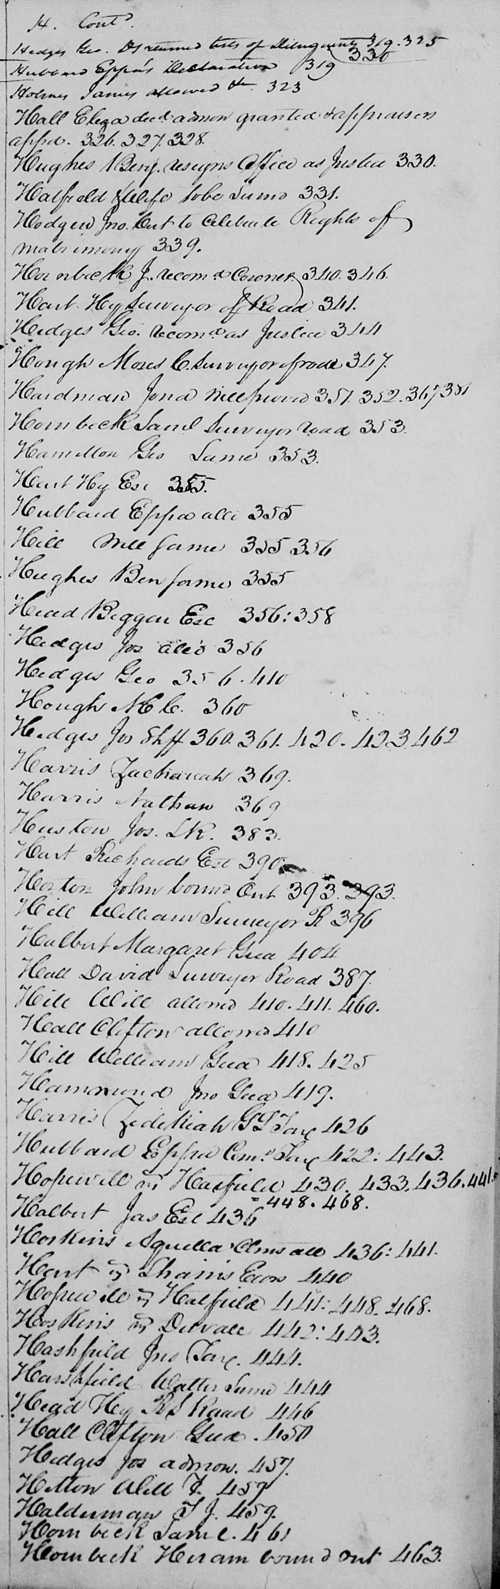 H. Cont.
Hedges Geo. Returned lists of Delinquents 319. 325
330
Hubbard Eppa's Declaration 319
Holmes James allowed &c 323
Hall Eliza decd admon granted & appraisers
appd. 326. 327. 328.
Hughes Benj. resigns Office as Justice 330.
Hatfield & Wife to be Sumd 331.
Hodgen Jno. Cert to Celebrate Rights of
matrimony 339.
Hornbeck J. recomd Coroner 340. 346.
Hart Hy Surveyor of Road 341.
Hedges Geo. recomd as Justice 344
Hough Moses C. Surveyor of road 347.
Hardman Jona 351. 352. 367 381
Hornbeck Saml Surveyor road 353.
Hamilton Geo Same 353.
Hart Hy Esc 355.
Hubbard Eppa allc 355
Hill Will Same 355 356
Hughes Ben Same 355
Head Biggar Esc 356: 358
Hedges Jos allc's 356
Hedges Geo 356. 410
Hough M C. 360
Hedges Jos Shff 360. 361. 420. 423 462
Harris Zachariah 369.
Harris Nathan 369
Huston Jos. 383.
Hart Richards Est 390.
Horton John bound Out 393. 393.
Hill William Surveyor R 396
Hulbert Margaret Gua 404
Hall David Surveyor Road 387.
Hill Will allowd 410. 411. 460.
Hall Clifton allowd 410
Hill William Gua 418. 425
Hammond Jno Gua 419.
Harris Zedekiah 426
Hubbard Eppa 422: 443.
Hopewill vs Hatfield 430. 433. 436. 441.
448. 468.
Halbert Jas Est 436
Hoskins Aquella 436: 441.
Hart vs Thains Exors 440
Hopewill vs Hatfield 441: 448. 468.
Hoskins vs 442: 443.
Hashfild Jno 444.
Harshfield Walter Same 444
Head Hy Road 446
Hall Clifton Gua. 450
Hedges Jos admon. 457.
Hetton Will T. 459
Halderman T J. 459.
Hornbeck Saml. 461
Hornbeck Hiram bound out 463.